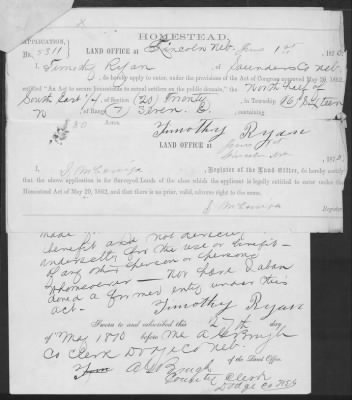 X
HOMESTEAD.
APPLICATION,
No. 5311
LAND OFFICE at Lincoln Neb. June 1st, 1870
I, Timothy Ryan of Saunders Co Neb
do hereby apply to enter, under the provisions of the Act of Congress approved May 20, 1862,
entitled "An Act to secure homesteads to actual settlers on the public domain," the North half of
South East 1/4 of Section (20) Twenty in Township 16, Sixteen
N of Range 7 Seven E containing
80 Acres.
Timothy Ryan
LAND OFFICE at
June 1st
Lincoln Neb 1870
I, Register of the Land Office, do hereby certify
that the above application is for Surveyed Lands of the class which the applicant is legally entitled to enter under the
Homestead Act of May 20, 1862, and that there is no prior, valid, adverse right to the same.
Register
made
benefit and not directly
indirectly for the use or benefit
of any other person or persons
whomsoever — Nor have I
a former entry under this
act -
Timothy Ryan
Sworn to and subscribed this 27th day
of May 1870 before me A G Brugh
Co Clerk Dodge Co Neb.
of the Land Office.
A G Brugh
County Clerk
Dodge Co Neb